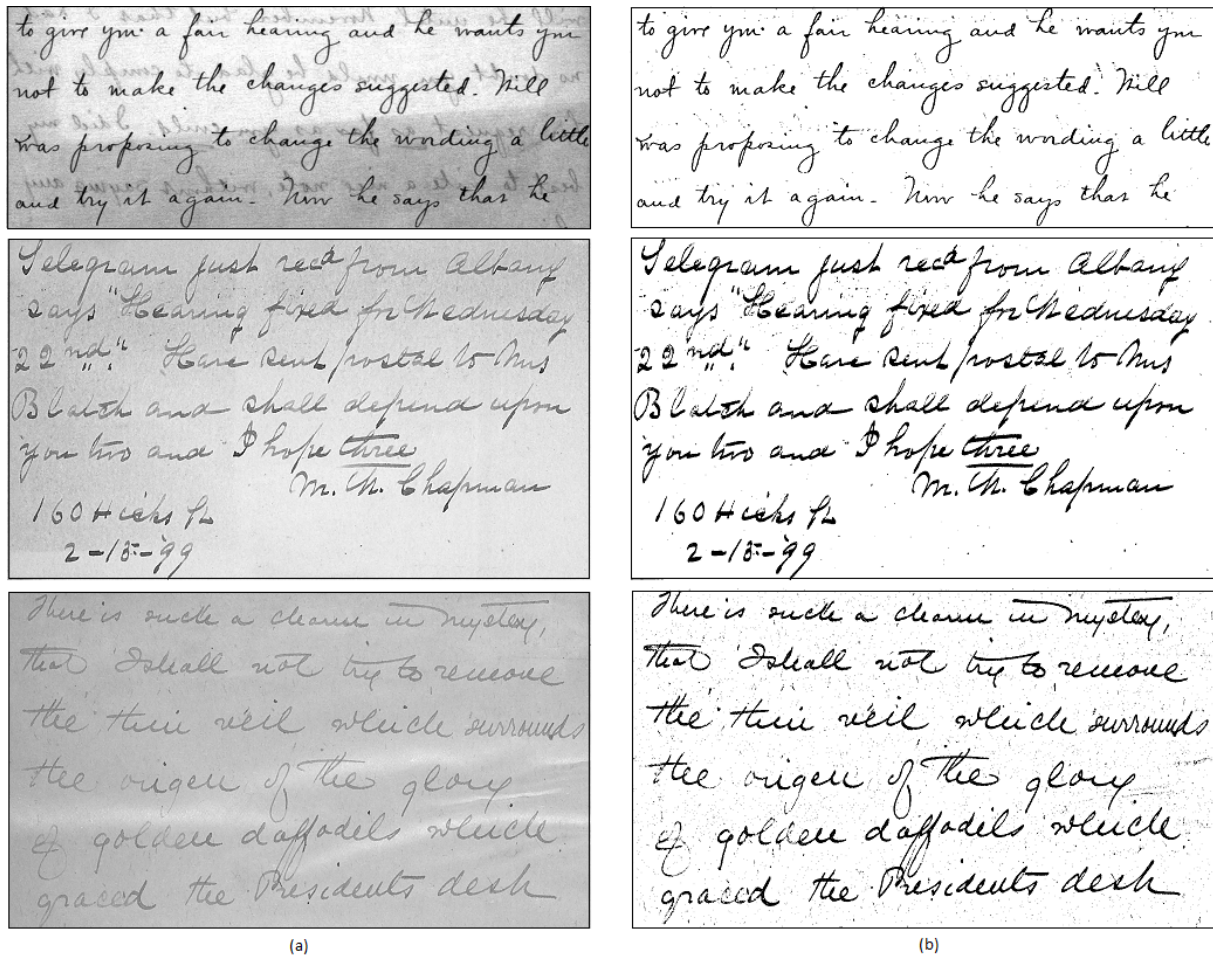 to give you a fair hearing and he wants you
not to make the changes suggested. Will
was proposing to change the wording a little
and try it again. Now he says that he
Telegram just recd from Albany
says "Hearing fixed for Wednesday
22nd." Have sent postal to Mrs
Blatch and shall depend upon
you two and I hope three
M. M. Chapman
160 Hicks St.
2-15-99
There is such a charm in mystery,
that I shall not try to remove
the thin veil which surrounds
the origen of the glory
of golden daffodils which
graced the Presidents desk
(a)
to give you a fair hearing and he wants you
not to make the changes suggested. Will
was proposing to change the wording a little
and try it again. Now he says that he
Telegram just recd from Albany
says "Hearing fixed for Wednesday
22nd." Have sent postal to Mrs
Blatch and shall depend upon
you two and I hope three
M. M. Chapman
160 Hicks St.
2-15-99
There is such a charm in mystery,
that I shall not try to remove
the thin veil which surrounds
the origen of the glory
of golden daffodils which
graced the Presidents desk
(b)